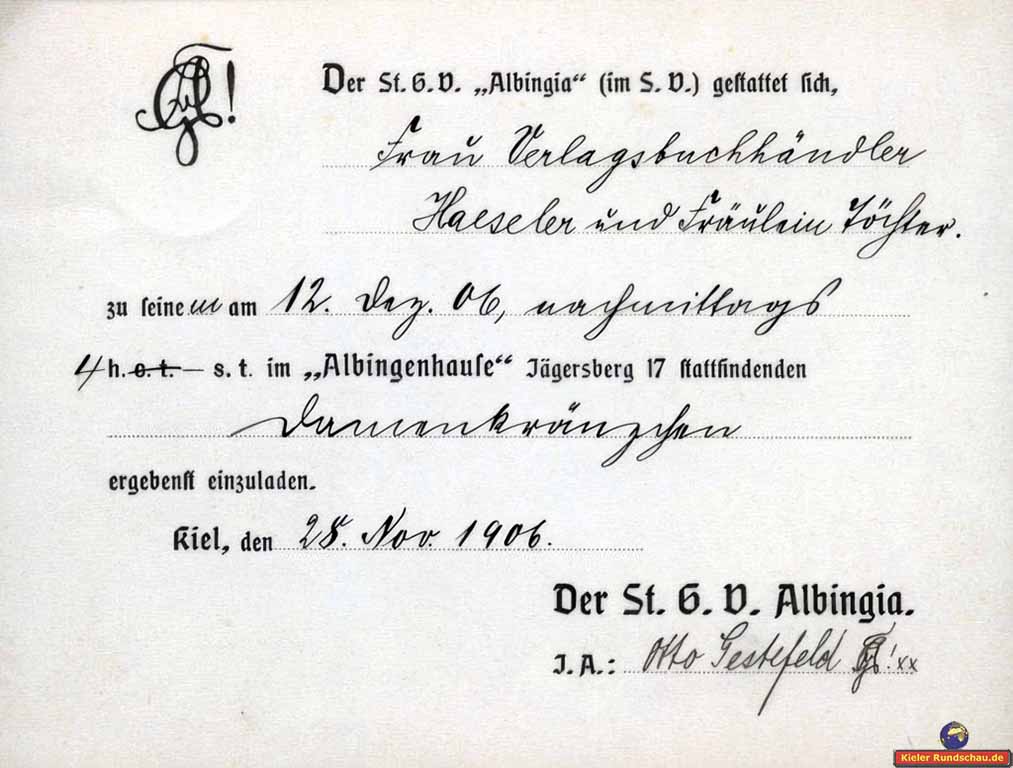 Der St. G. V. „Albingia“ (im S. V.) gestattet sich,
Frau Verlagsbuchhändler
Haeseler und Fräulein Töchter.
zu seinem am 12. Dez. 06, nachmittags
4 h. o. t. — s. t. im „Albingenhause“ Jägersberg 17 stattfindenden
Damenkränzchen
ergebenst einzuladen.
Kiel, den 28. Nov. 1906.
Der St. G. V. Albingia.
I. A.: Otto Gestefeld ! xx
Kieler Rundschau.de